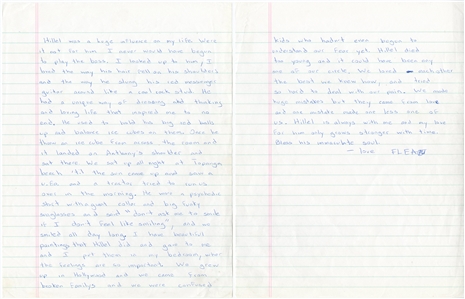 Hillel was a huge influence on my life. Were
it not for him I never would have began
to play the bass. I looked up to him, I
loved the way his hair fell on his shoulders
and the way he slung his red messenger
guitar around like a cool cat stud. He
had a unique way of dressing and thinking
and being life that inspired me to no
end. He used to hold his big red balls
up and balance ice cubes on them. Once he
threw an ice cube from across the room and
it landed on Anthony's shoulder and
sat there. We sat up all night at Topanga
beach 'til the sun came up and
and a tractor tried to run us
over in the morning. He wore a psychedelic
shirt with a giant collar and big
sunglasses and said "don't ask me to smile
if I don't feel like smiling", and we
smiled all day long. I have beautiful
paintings that Hillel did and gave to me
and I put them in my bedroom, where
the feelings are so important. We grew
up in Hollywood and we came from
broken familys and we were confused
kids who hadn't even begun to
understand our fears yet. Hillel died
too young and it could have been any
one of our circle. We loved each other
the best we knew how, and tried
so hard to deal with our pain. We made
huge mistakes but they came from love
and one mistake made one less one of
us. Hillel is always with me and my love
for him only grows stronger with time.
Bless his immovable soul.
- love FLEA